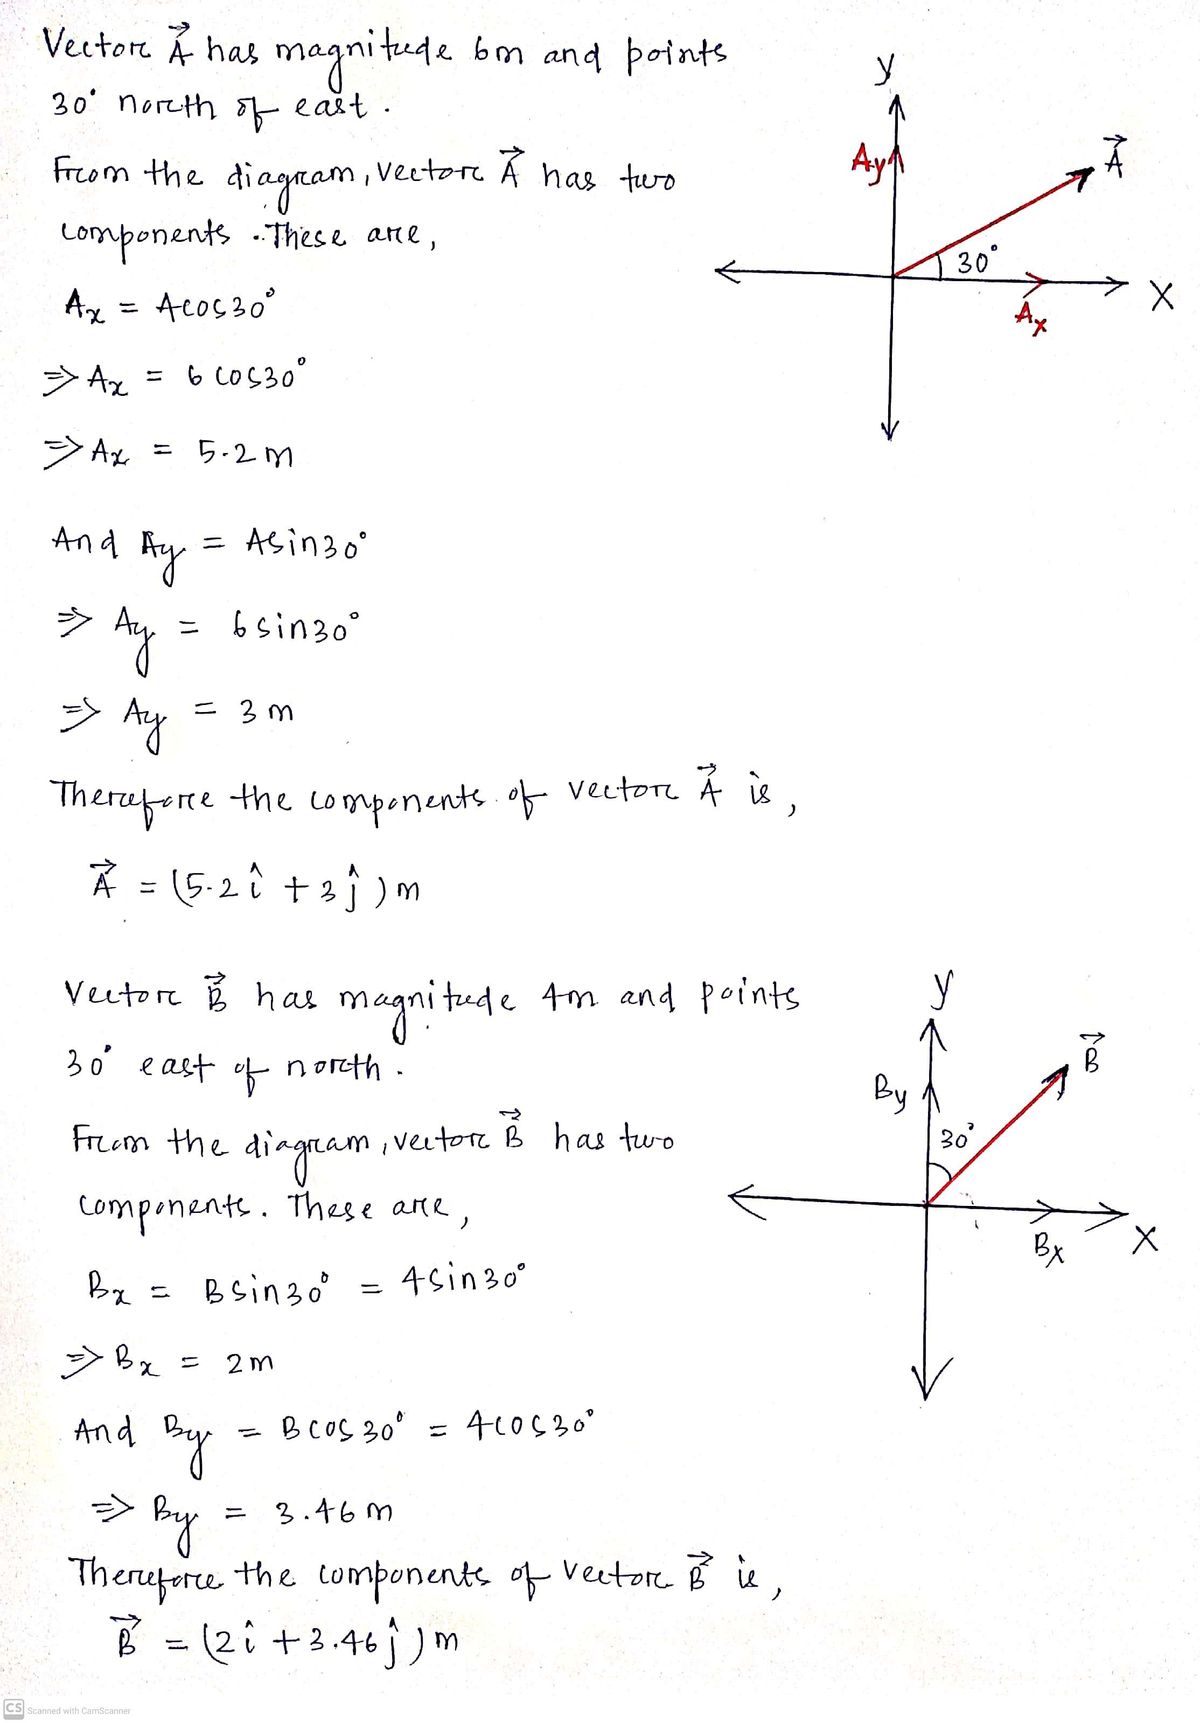 Vector A⃗ has magnitude 6m and points
30° north of east.
From the diagram, vector A⃗ has two
components. These are,
Ax = Acos30°
⇒ Ax = 6 cos30°
⇒ Ax = 5.2 m
And Ay = Asin30°
⇒ Ay = 6 sin30°
⇒ Ay = 3 m
Therefore the components of vector A⃗ is,
A⃗ = (5.2 î + 3 ĵ) m
y
Ay
A⃗
30°
X
Ax
Vector B⃗ has magnitude 4m and points
30° east of north.
From the diagram, vector B⃗ has two
components. These are,
Bx = Bsin30° = 4sin30°
⇒ Bx = 2m
And By = Bcos30° = 4cos30°
⇒ By = 3.46 m
Therefore the components of vector B⃗ is,
B⃗ = (2 î + 3.46 ĵ) m
y
By
B⃗
30°
X
Bx
CS Scanned with CamScanner